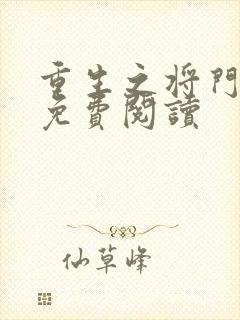 重生之将門
免費閱讀
仙草峰